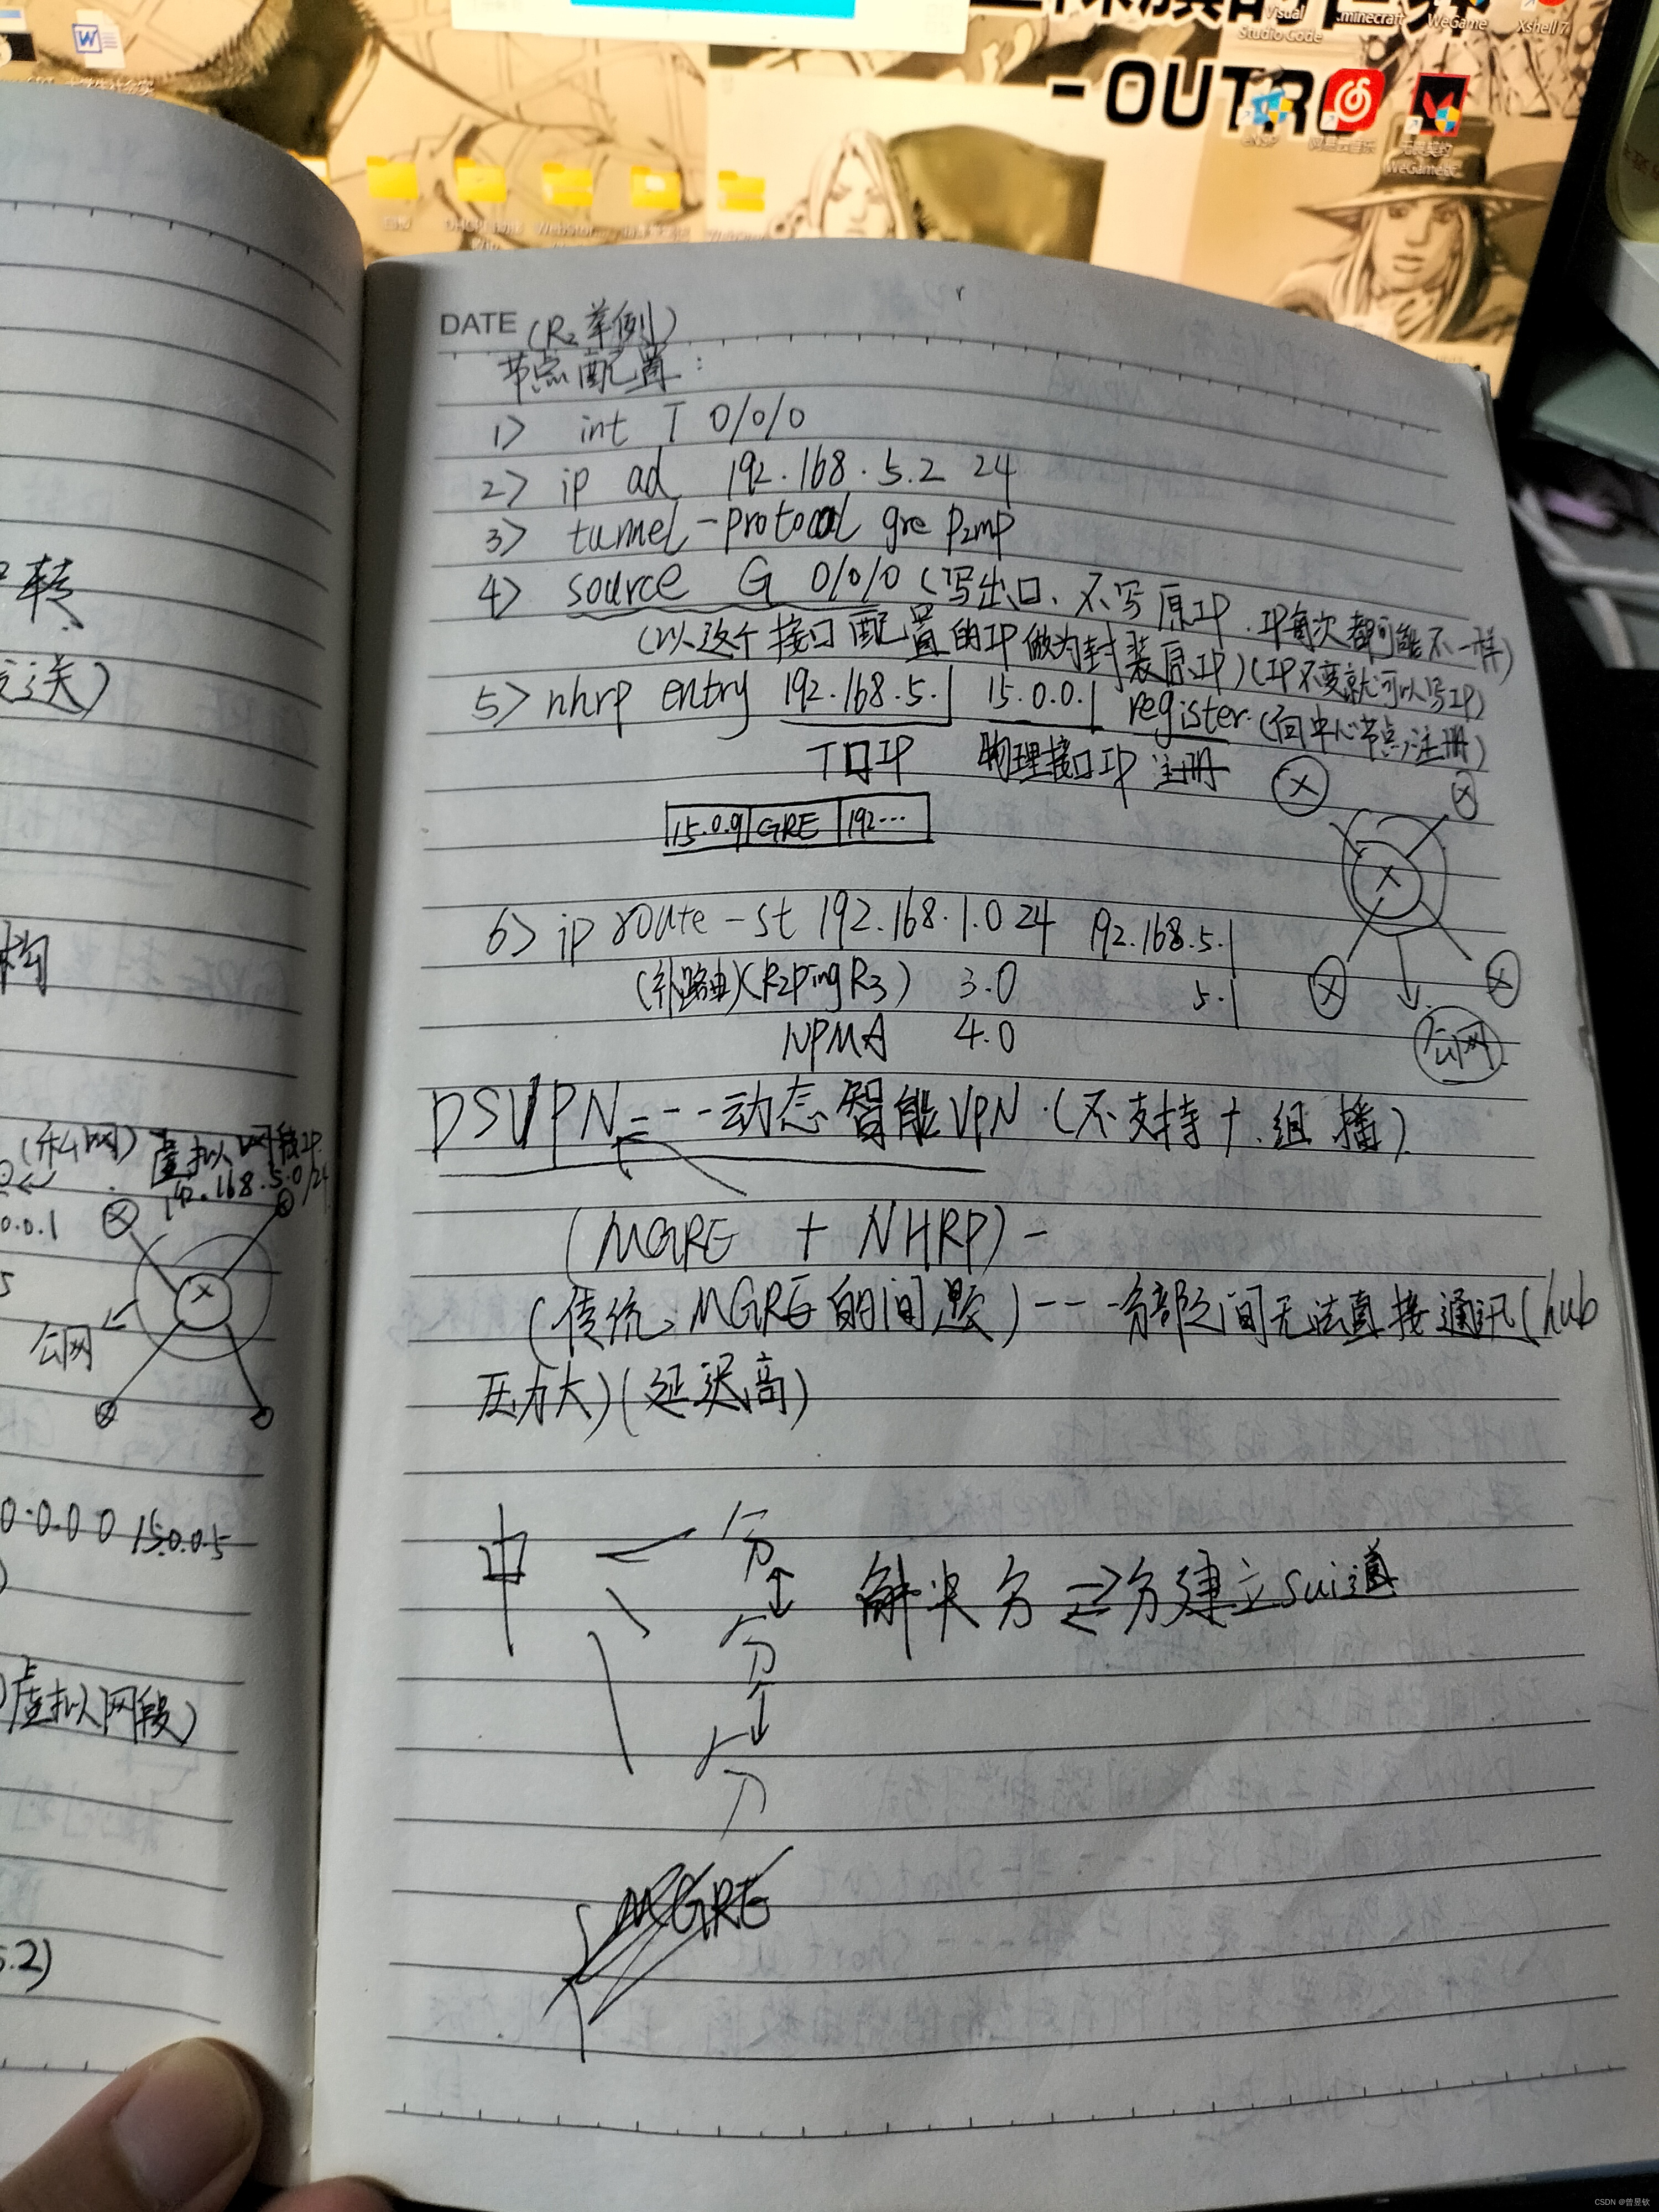 Visual Studio Code
.minecraft
WeGame
Xshell 7
-OUTRO
eNSP
网易云音乐
无畏契约
WeGame版
DATE (R2举例)
节点配置:
1> int T 0/0/0
2> ip ad 192.168.5.2 24
3> tunnel-protocol gre p2mp
4> source G 0/0/0 (写出口、不写原IP.IP每次都可能不一样)
(以这个接口配置的IP做为封装原IP)(IP不变就可以写IP)
5> nhrp entry 192.168.5.1 15.0.0.1 register.(向中心节点注册)
T口IP 物理接口IP 注册
15.0.9 GRE 192...
6> ip route-st 192.168.1.0 24 192.168.5.1
(补路由)(R2pingR3) 3.0 5.1
NPMA 4.0
公网
DSVPN=---动态智能VPN.(不支持十.组播).
(MGRE + NHRP)-
(传统、MGRE的问题)---分部之间无法直接通讯(hub
压力大)(延迟高)
中 分
分 解决分⇌分建立sui道
分
MGRE
转
送)
构
(私网) 虚拟网段IP
192.168.5.0/24
0.0.1
5
公网
0.0.0 0 15.0.0.5
)
)虚拟网段)
5.2)
CSDN @曾昱钦